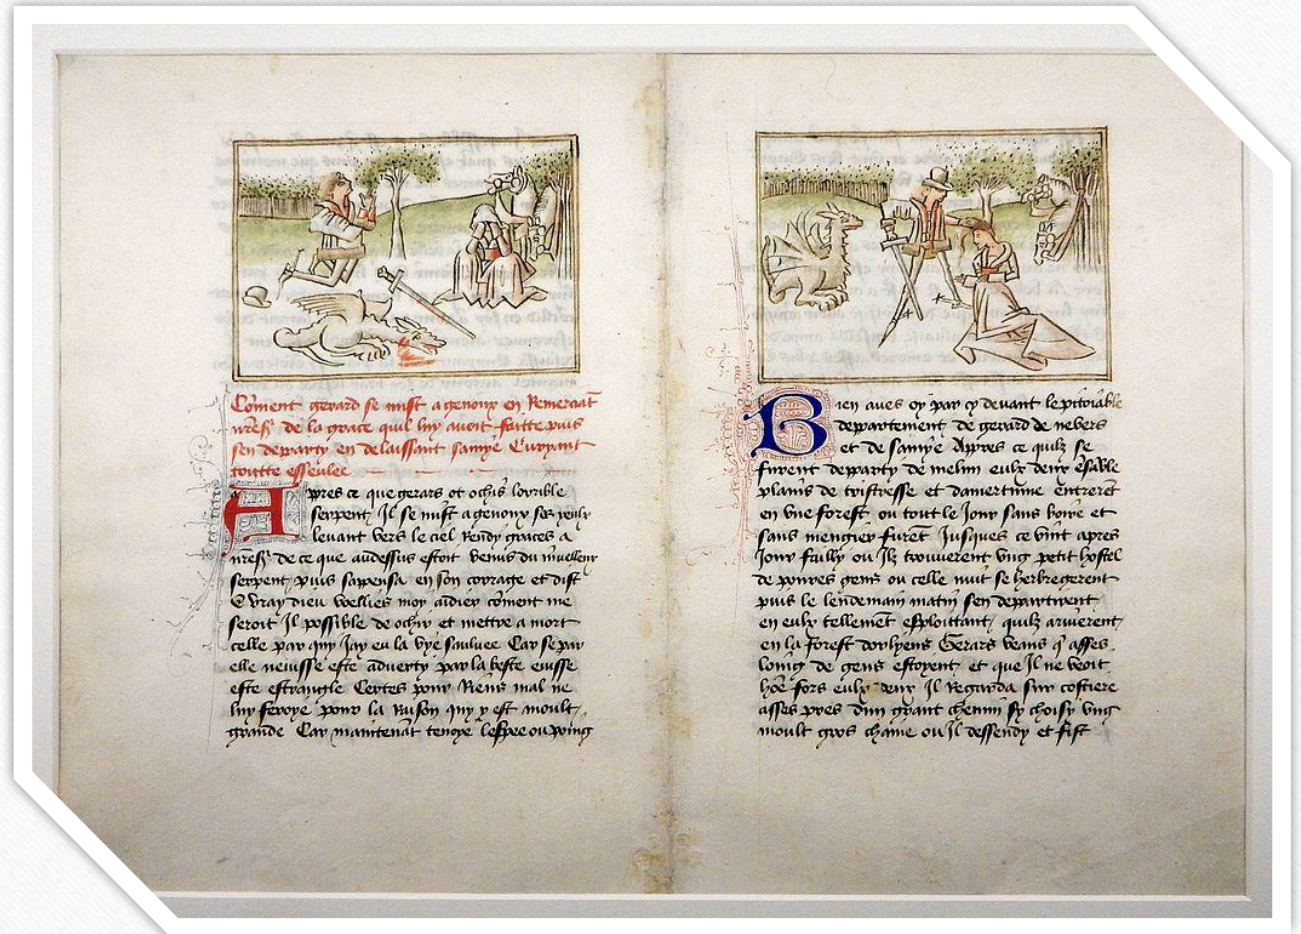 Cõment gerard se mist a genoux en Remerciãt
nreŝ de la grace quil luy avoit faitte puis
sen departy en delaissant
toutte esseulee
Apres ce que gerars ot ochis lorrible
serpent Il se mist a genoux ses yeulx
levant vers le ciel Rendy graces a
nreŝ de ce que audessus estoit venus du
serpent puis sappensa en son corage et dist
O vray dieu voellies moy aidier cõment me
seroit Il possible de ochir et mettre a mort
celle par quy Jay eu la vye sauluee Car se par
elle neuisse este aduerty par la beste euisse
este estrangle Certes pour Riens mal ne
luy feroye pour la Raison quy y est moult
grande Car maintenãt tenoye lespee ou poing
Bien aves oy par cy devant le pitoiable
departement de gerard de nevers
et de Appres ce quilz se
furent departy de melun eulx deux
plains de tristresse et damertume entrerẽt
en vne forest ou tout le Jour sans boire et
sans mengier furẽt Jusques ce vint apres
Jour failly ou Ilz trouuerent vng petit hostel
de poures gens ou celle nuit se herbregerent
puis le lendemain matin sen departirent
en eulx tellemẽt esploittant quilz ariuerent
en la forest dorlyens Gerars veans q̃ asses
loing de gens estoyent et que Il ne veoit
hõe fors eulx deux Il Regarda sur costiere
asses pres dun grant chemin sy choisy vng
moult gros ou Il dessendy et fist